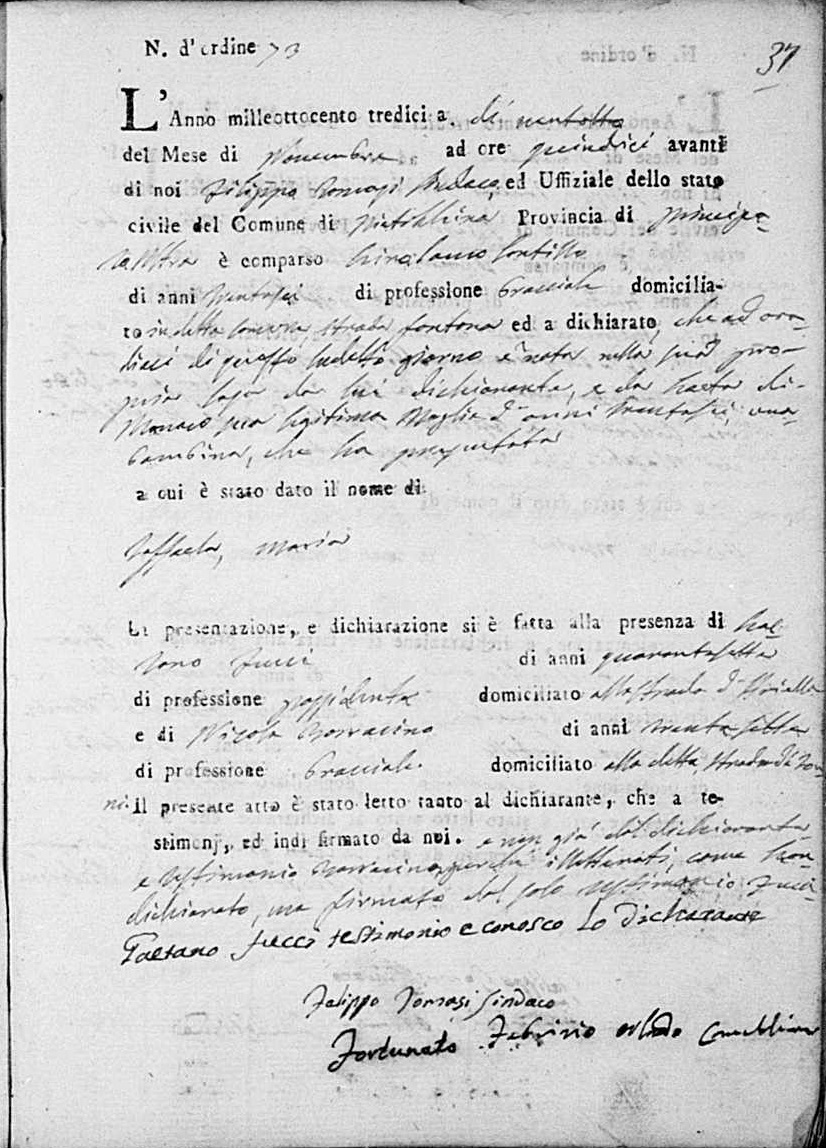 N. d'ordine 73
37
L'Anno milleottocento tredici a. dì ventotto
del Mese di Novembre ad ore quindici avanti
di noi Filippo Tomasi Sindaco, ed Uffiziale dello stato
civile del Comune di Provincia di Principa-
to Citra è comparso
di anni di professione Bracciale domicilia-
to in detta Comune, strada fontana ed a dichiarato, che ad ore
dieci di questo sudetto giorno è nata nella sua pro-
pria casa da lui dichiarante, e da di-
Monaco sua legitima Moglie d'anni trentasei, una
bambina, che ha presentata
a cui è stato dato il nome di
Raffaela, Maria
La presentazione, e dichiarazione si è fatta alla presenza di Gae-
tano Fucci di anni quarantasette
di professione possidente domiciliato alla strada
e di Nicola Norracino di anni trentasette
di professione Bracciale domiciliato alla detta strada
Il presente atto è stato letto tanto al dichiarante, che a te-
stimonj, ed indi firmato da noi. e non già dal dichiarante
e testimonio Norracino, perchè illetterati, come han
dichiarato, ma firmato dal solo testimonio Fucci
Gaetano Fucci testimonio e conosco lo dichiarante
Filippo Tomasi Sindaco
Fortunato Fabrizio